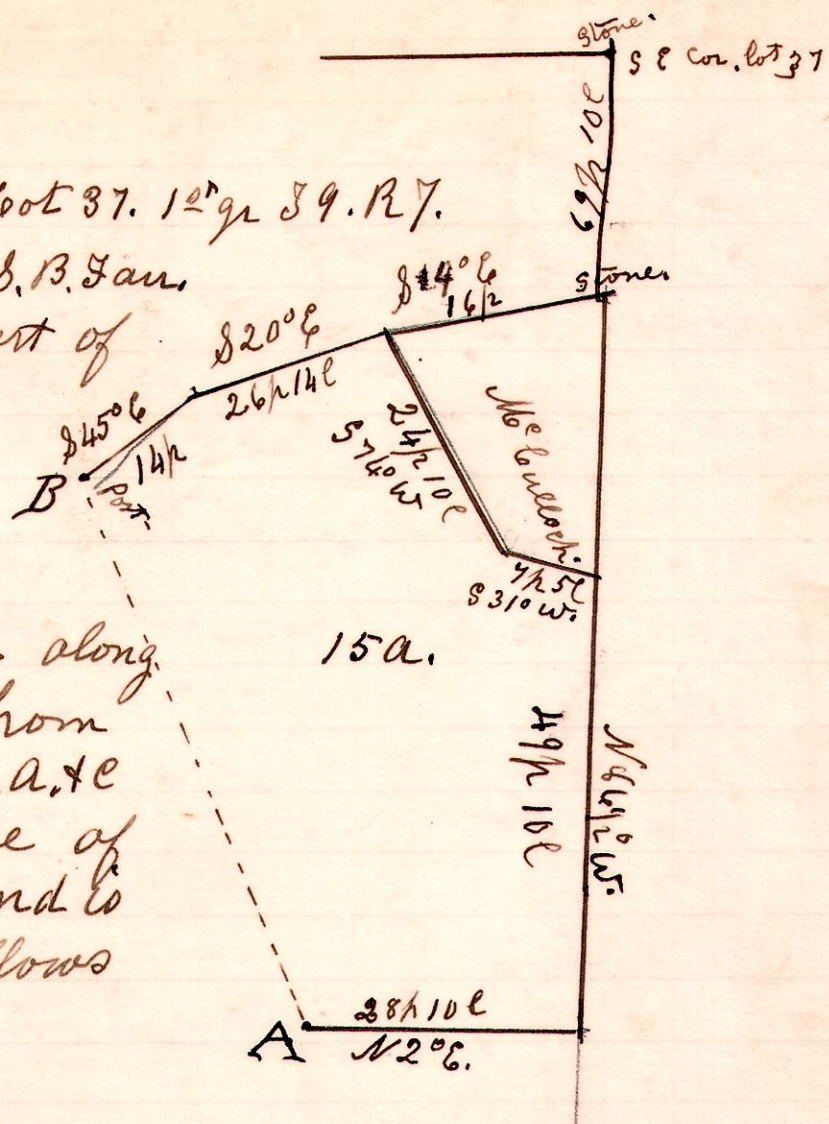 Stone.
S E Cor. lot 37
10 l
Lot 37. 1st gr T 9. R 7.
S. B. Farr.
Stone.
S 14° E
16 p
S 20° E
26 p 14 l
S 45° E
14 p
B
Post
24 p 10 l
S 74° W
McCulloch.
7 p 5 l
S 31° W.
along
from
A, & C
of
15 a.
49 p 10 l
N 86 1/2° W.
28 p 10 l
A
N 2° E.